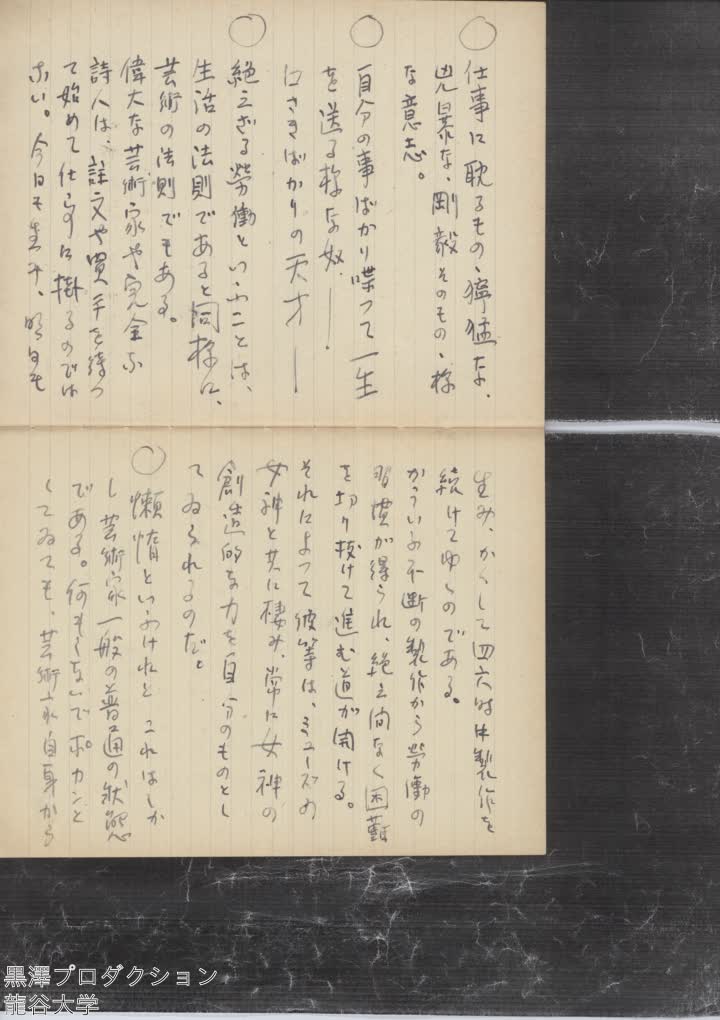 ○ 仕事に耽るもの、獰猛な、
兇暴な、剛毅そのもの、様
な意志。
○ 自分の事ばかり喋って一生
を送る様な奴。――
口さきばかりの天才――
○ 絶えざる労働といふことは、
生活の法則であると同様に、
芸術の法則でもある。
偉大な芸術家や完全な
詩人は、註文や買手を待つ
て始めて仕事に掛るのでは
ない。今日も生み、明日も
生み、かくして四六時中製作を
続けてゆくのである。
かういふ不断の製作から労働の
習慣が得られ、絶え間なく困難
を切り抜けて進む道が開ける。
それによって彼等は、ミューズの
女神と共に棲み、常に女神の
創造的な力を自分のものとし
てゐられるのだ。
○ 懶惰といふけれど これはしか
し芸術家一般の普通の状態
である。何もしないでポカンと
してゐても、芸術家自身から
黒澤プロダクション
龍谷大学